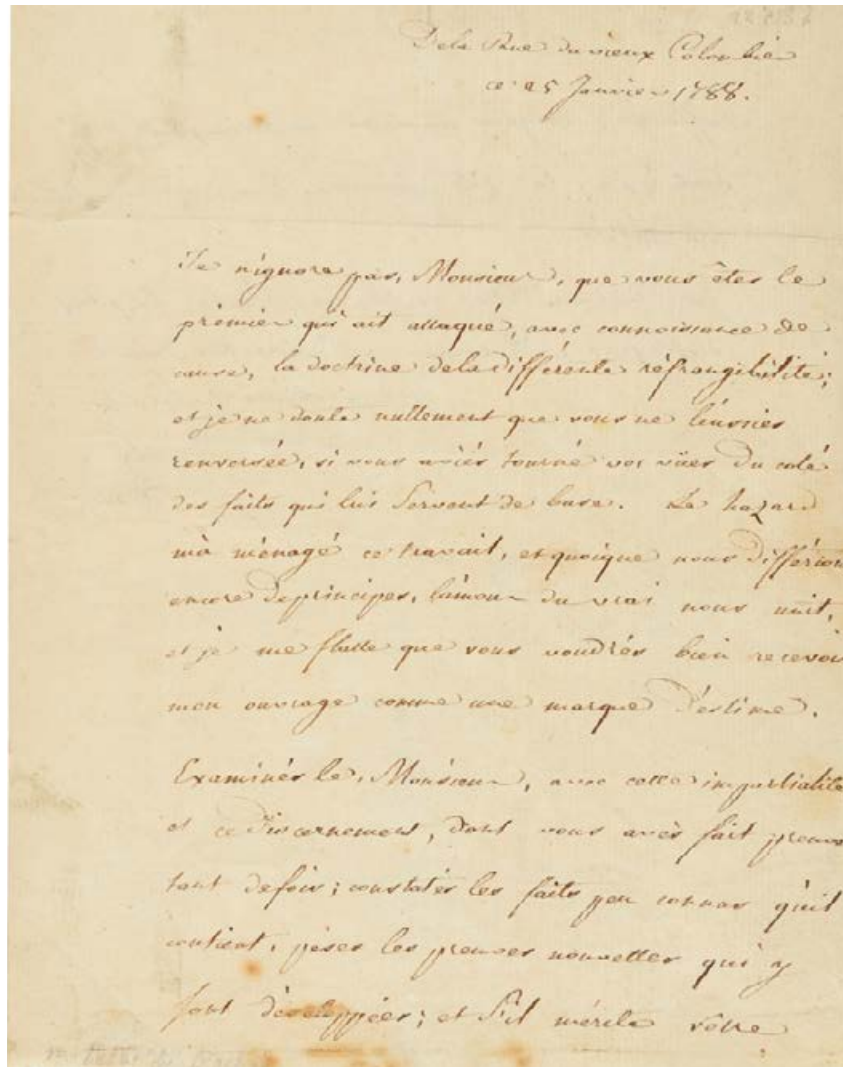 De la Rue du vieux Colombier
ce 25 Janvier 1788.
Je n'ignore pas, Monsieur, que vous êtes le
prémier qui ait attaqué, avec connoissance de
cause, la doctrine de la différente réfrangibilité;
et je ne doute nullement que vous ne l'eussiés
renversée, si vous aviés tourné vos vües du coté
des faits qui lui servent de base. Le hazard
m'a ménagé ce travail, et quoique nous différions
encore de principes, l'amour du vrai nous unit,
et je me flatte que vous voudrés bien recevoir
mon ouvrage comme une marque d'estime.
Examinés le, Monsieur, avec cette impartialité
et ce discernement, dont vous avés fait preuve
tant de fois; constatés les faits peu connus qu'il
contient, pesés les preuves nouvelles qui y
sont développées; et s'il mérite votre